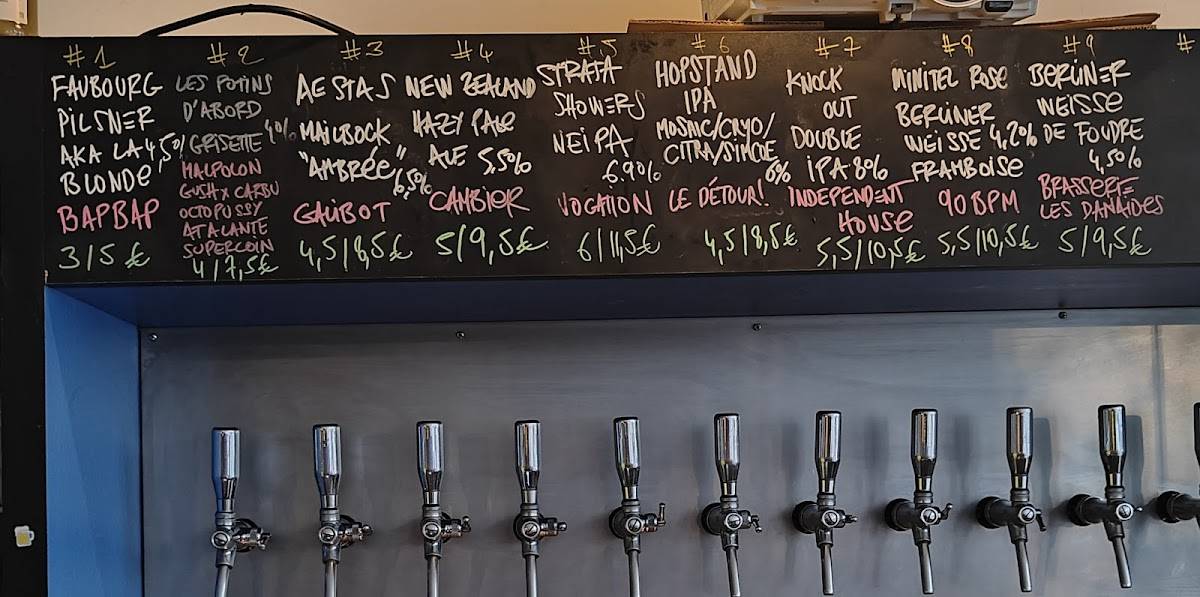 #1
FAUBOURG
PILSNER
AKA LA 4,5%
BLONDE
BAPBAP
3/5€
#2
LES POTINS
D'ABORD
GRISETTE 4,0%
MALPOLON
GUSH X CARBU
OCTOPUSSY
ATALANTE
SUPERCOIN
4/7,5€
#3
AESTAS
MAILBOCK
"AMBRÉE"
6,5%
GALIBOT
4,5/8,5€
#4
NEW ZEALAND
HAZY PALE
ALE 5,5%
CAMBIER
5/9,5€
#5
STRATA
SHOWERS
NEIPA
6,90%
VOGATION
6/11,5€
#6
HOPSTAND
IPA
MOSAIC/CRYO/
CITRA/SIMCOE
6%
LE DÉTOUR!
4,5/8,5€
#7
KNOCK
OUT
DOUBLE
IPA 8%
INDEPENDENT
HOUSE
5,5/10,5€
#8
MINITEL ROSE
BERLINER
WEISSE 4,2%
FRAMBOISE
90 BPM
5,5/10,5€
#9
BERLINER
WEISSE
DE FOUDRE
4,50%
BRASSERIE
LES DANAÏDES
5/9,5€
#